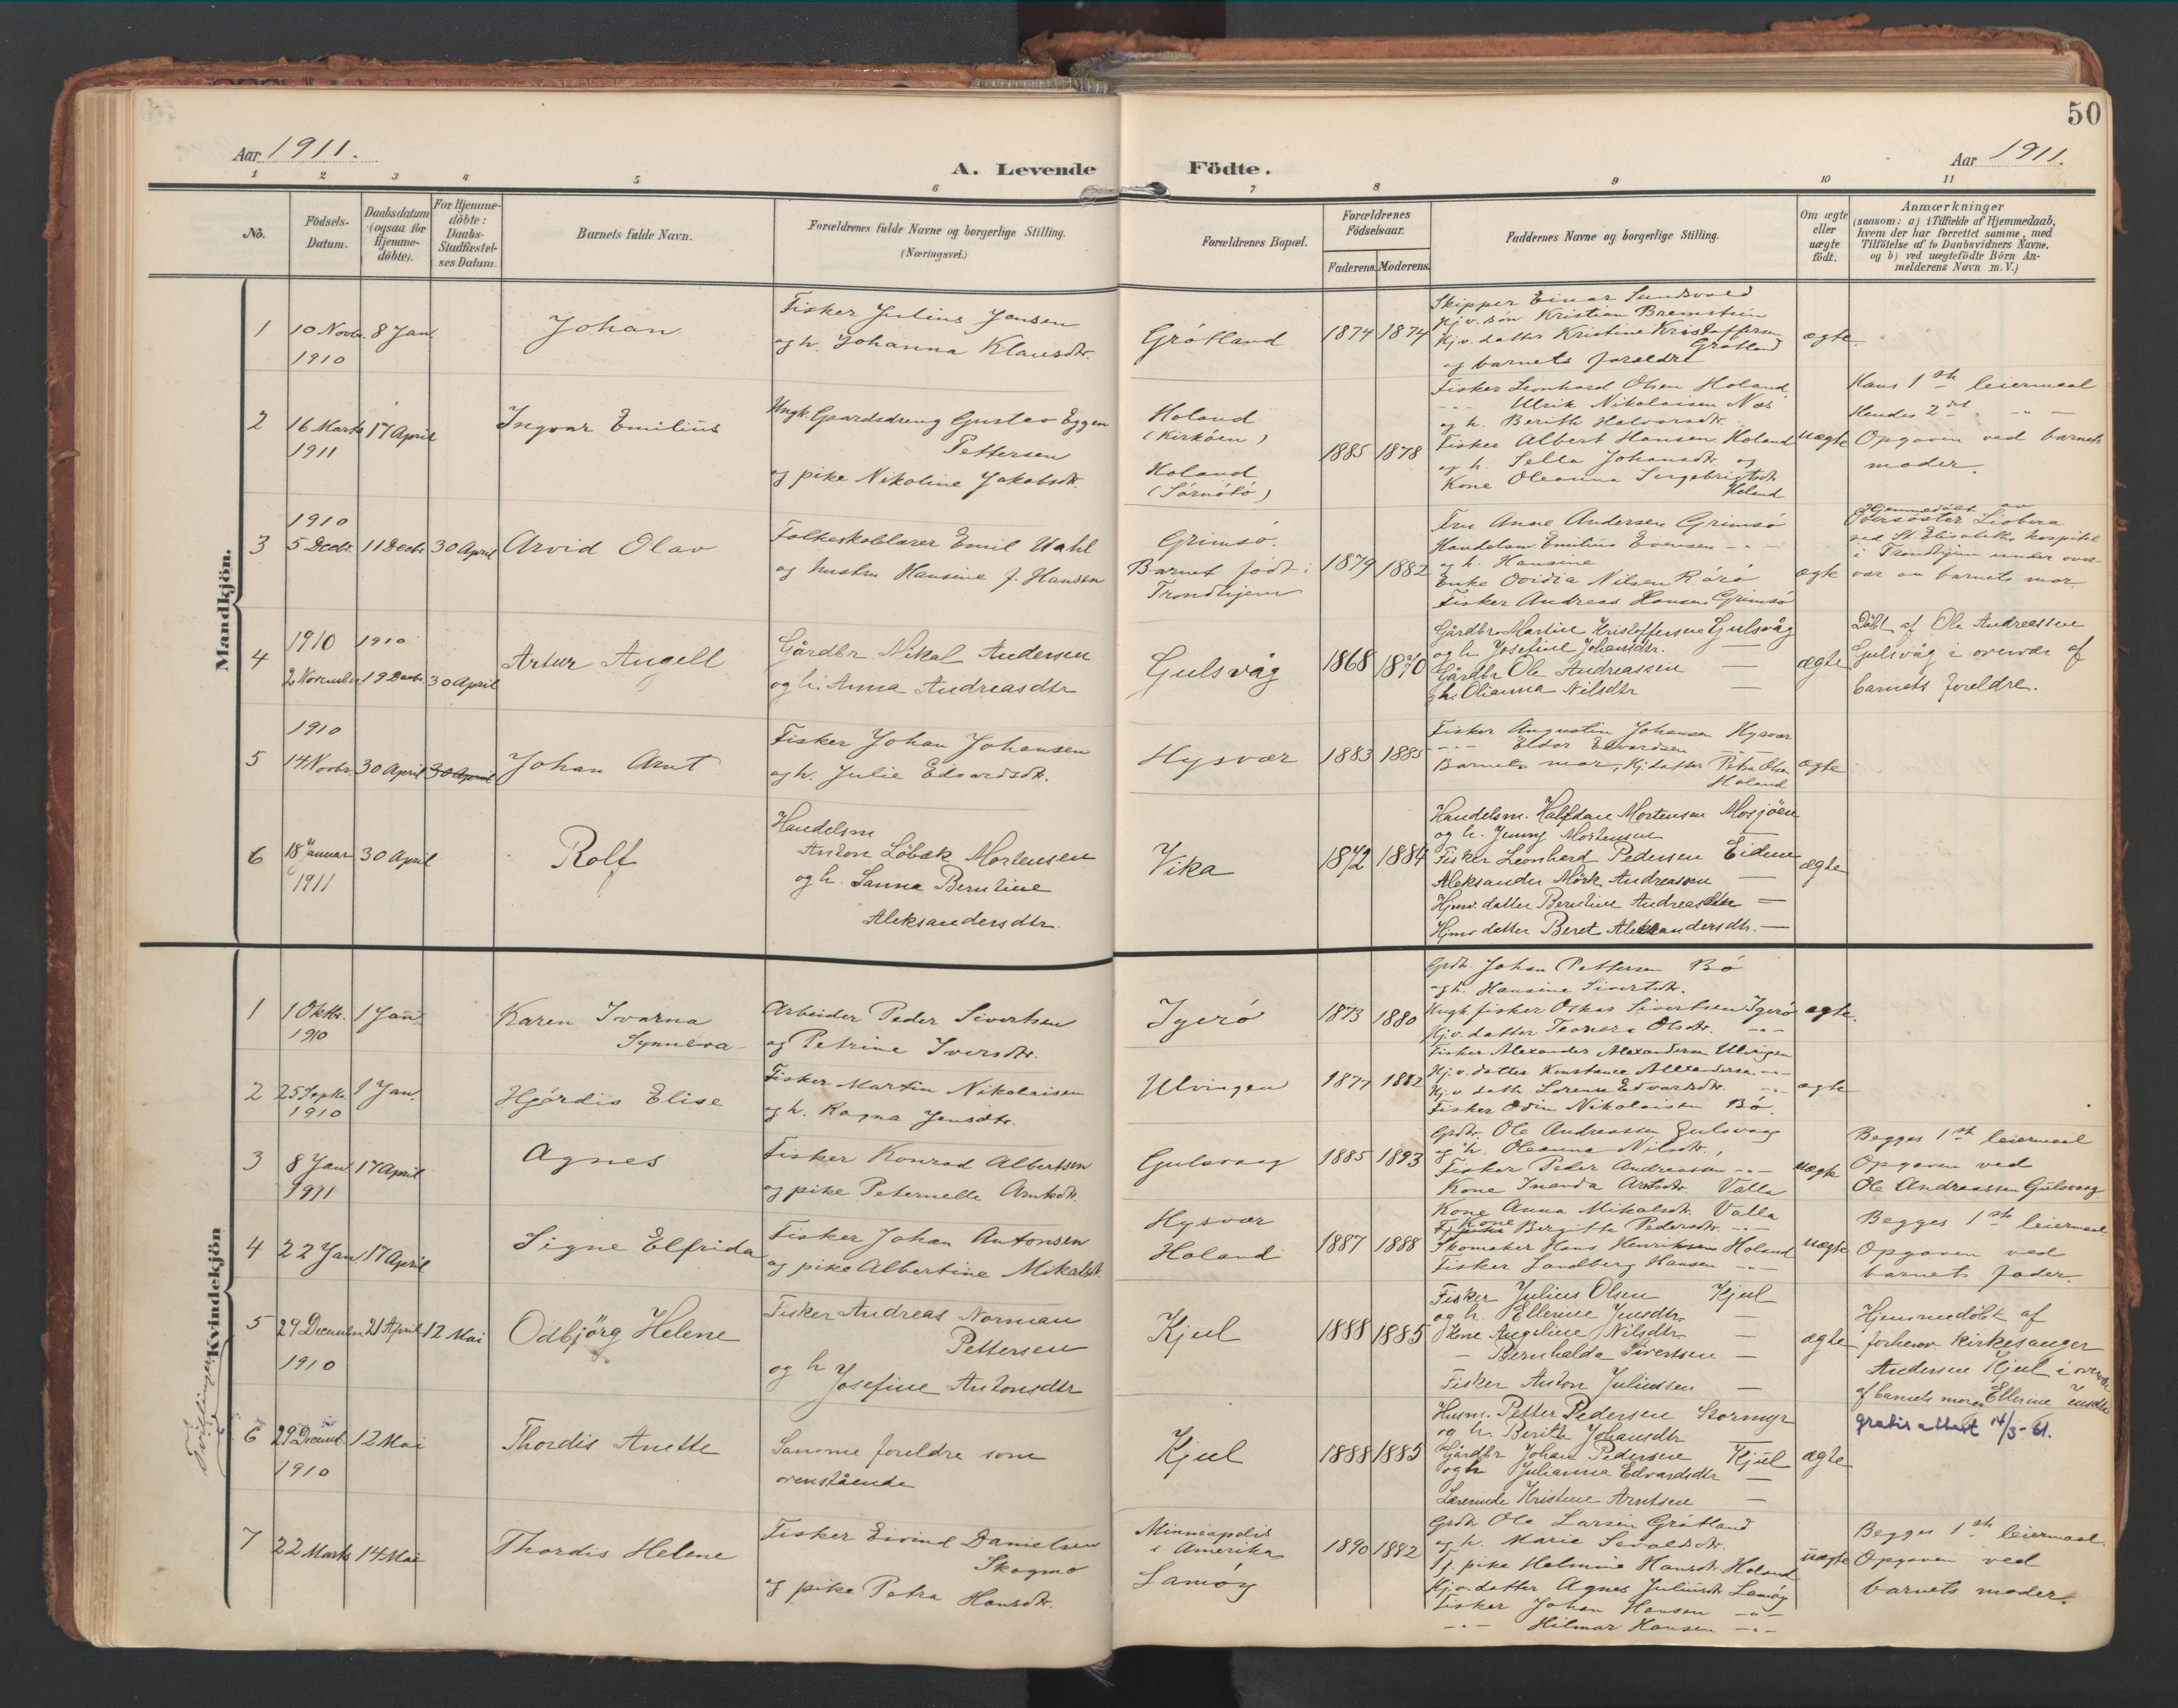 50
Aar 1911.
A. Levende Födte.
Aar 1911.
1 2 3 4 5 6 7 8 9 10 11
No.
Födsels-Datum.
Daabsdatum (ogsaa for Hjemme-döbte).
For Hjemme-döbte: Daabs-Stadfæstel-ses Datum.
Barnets fulde Navn.
Forældrenes fulde Navne og borgerlige Stilling.
(Næringsvei.)
Forældrenes Bopæl.
Forældrenes Födselsaar.
Faderens. Moderens.
Faddernes Navne og borgerlige Stilling.
Om ægte eller uægte födt.
Anmærkninger
(saasom: a) i Tilfælde af Hjemmedaab,
hvem der har forrettet samme, med
Tilföielse af to Daabsvidners Navne,
og b) ved uægtefödte Börn An-
melderens Navn m. V.)
Mandkjön.
1
10 Novbr. 1910
8 Jan.
Johan
Fisker Julius Jensen
og h. Johanna Klausdtr.
Grótland
1874 1874
Skipper Einar Sundsvold
Hj.v. søn Kristian Bremstein
Hj.v. datter Kristine Kristoffersen
Grótland
og barnets foreldre
ægte.
2
16 Marts 1911
17 April
Ingvar Emilius
Ungk. Gaardsdreng Gustav Eggen
Pettersen
og pike Nikoline Jakobsdtr.
Holand
(Kirköen)
Holand
(Sörnótó)
1885 1878
Fisker Leonhard Olsen Holand
-"- Ulrik Nikolaisen Næs
og h. Berith Halvorsdtr.
Fisker Albert Hansen Holand
og h. Sella Johansdtr. og
Kone Oleanna Ingebrigtsdtr.
Holand
uægte
Hans 1ste leiermaal
Hendes 2det -"-
Opgaven ved barnets
moder.
3
1910
5 Decbr.
11 Decbr.
30 April
Arvid Olav
Folkeskolelærer Emil Wahl
og hustru Hansine J. Hansen
Grimsó.
Barnet født i
Trondhjem
1879 1882
Fru Anne Andersen Grimsó
Handelsm. Emilius Evensen -"-
og h. Hansine
Enke Ovidia Nilsen Róró
Fisker Andreas Hansen Grimsó
ægte
Hjemmedóbt av
Oversöster Liobera
ved St. Elisabeths hospital
i Trondhjem under over-
vær av barnets mor
4
1910
2 November
1910
19 Decbr.
30 April
Artur Angell
Gårdbr Nikal Andersen
og h. Anna Andreasdtr
Gulsvåg
1868 1870
Gårdbr Martin Kristoffersen Gulsvåg
og h. Josefine Johansdtr. —
Gårdbr Ole Andreassen —
og h. Olianna Nilsdtr —
ægte
Döbt af Ole Andreassen
Gulsvåg i overvær af
barnets foreldre.
5
1910
14 Novbr.
30 April
30 April
Johan Arnt
Fisker Johan Johansen
og h. Julie Edvardsdtr.
Hysvær
1883 1885
Fisker Augustin Johansen Hysvær
-"- Eldor Edvardsen -"-
Barnets mor, Hj. datter Petra Olsen
Holand
ægte
6
18 Januar 1911
30 April
Rolf
Handelsm
Anton Löbæk Mortensen
og h. Sanna Berntine
Aleksandersdtr.
Vika
1872 1884
Handelsm. Halfdan Mortensen Mosjöen
og h. Jenny Mortensen —
Fisker Leonhard Pedersen Eidem
Aleksander Mörk Andreassen —
Hjmv. datter Berntine Andreasdtr —
Hjmv datter Beret Aleksandersdtr. —
ægte
Kvindekjön
1
1 Oktbr. 1910
1 Jan
Karen Ivarna
Synneva
Arbeider Peder Sivertsen
og Petrine Iversdtr.
Igeró
1873 1880
Grdbr. Johan Pettersen Bó
og h. Hansine Sivertsdtr.
Ungk. fisker Oskar Sivertsen Igeró
Hj.v. datter Teonora Olsdtr. -"-
ægte.
2
25 Septbr. 1910
1 Jan.
Hjørdis Elise
Fisker Martin Nikolaisen
og h. Ragna Jensdtr.
Ulvingen
1877 1882
Fisker Alexander Alexandersen Ulvingen
Hj.v. datter Konstance Alexandersen -"-
Hj.v datter Lorense Edvardsdtr. -"-
Fisker Odin Nikolaisen Bó.
ægte
3
8 Jan 1911
17 April
Agnes
Fisker Konrad Albertsen
og pike Peternelle Arntsdtr.
Gulsvaag
1885 1893
Grdbr. Ole Andreassen Gulsvaag
og h. Oleanna Nilsdtr.,
Fisker Peder Andreassen -"-
Kone Inanda Arntsdtr. Valla
uægte
Begges 1ste leiermaal
Opgaven ved
Ole Andreassen Gulsvaag
4
22 Jan
17 April
Signe Elfrida
Fisker Johan Antonsen
og pike Albertine Mikalsdtr.
Hysvær
Holand
1887 1888
Kone Anna Mikalsdtr. Valla
Kone Bergitte Pedersdtr. -"-
Skomaker Hans Henriksen Holand
Fisker Sandberg Hansen -"-
uægte
Begges 1ste leiermaal
Opgaven ved
barnets fader.
Tvillinger
5
29 December 1910
21 April
12 Mai
Odbjörg Helene
Fisker Andreas Norman
Pettersen
og h Josefine Antonsdtr
Kjul
1888 1885
Fisker Julius Olsen Kjul
og h. Ellerine Jensdtr —
Kone Angeline Nilsdtr —
— Bernhalda Sivertsen —
Fisker Anton Juliussen —
ægte
Hjemmedöbt af
forhenv. Kirkesanger
Andersen Kjul i overvær
af barnets mor og Ellerine Jensdtr
gratis attest 14/3-61.
6
29 Decemb. 1910
12 Mai
Thordis Anette
Samme foreldre som
ovenstående
Kjul
1888 1885
Husm. Petter Pedersen Stormyr
og h. Berith Johansdtr
Gårdbr Johan Pedersen Kjul
og h Julianna Edvardsdtr —
Lærerinde Kristine Arntsen —
ægte
7
22 Marts
14 Mai
Thordis Helene
Fisker Eivind Danielsen
Skogmo
og pike Petra Hansdtr.
Minneapolis
i Amerika
Lamóy
1890 1892
Grdbr Ole Larsen Grótland
og h. Marie Sevaldsdtr.
Tj. pike Helmine Hansdtr. Holand
Hj.v. datter Agnes Juliusdtr. Lamóy
Fisker Johan Hansen -"-
-"- Hilmar Hansen -"-
uægte
Begges 1ste leiermaal.
Opgaven ved
barnets moder.